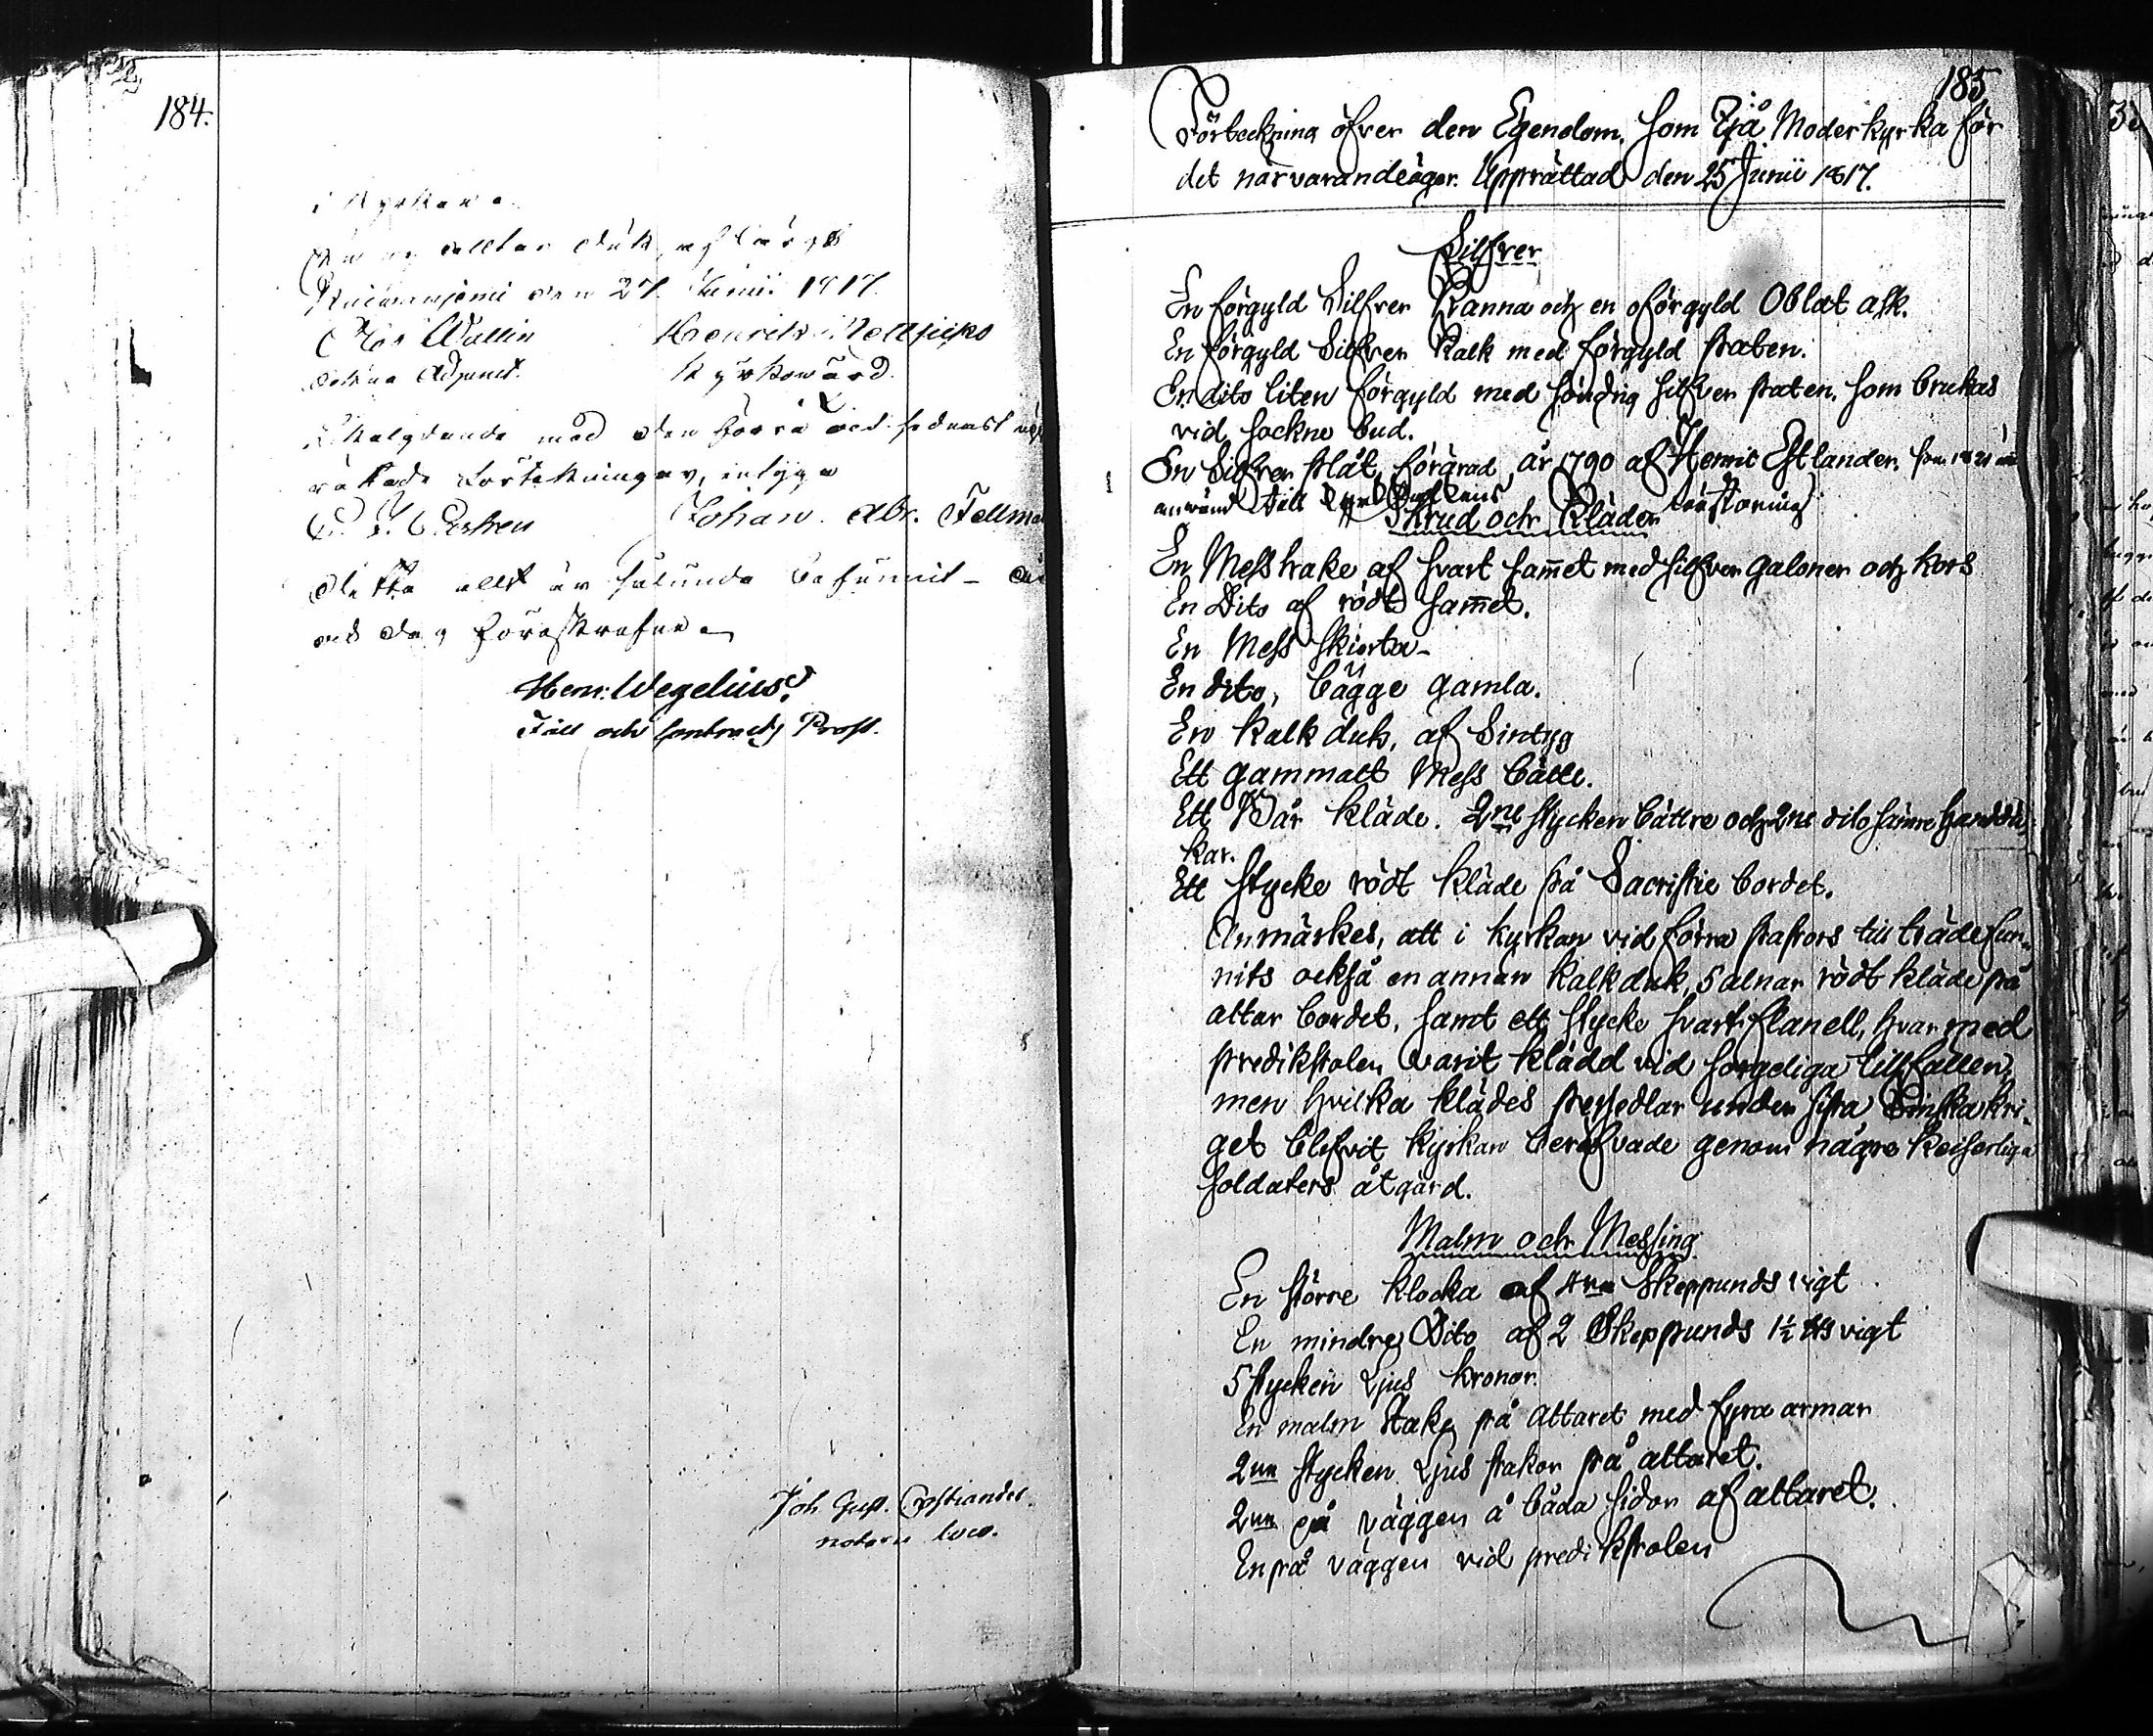 184.
i Kyrkan
altar duk af lärft
den 27 Junii 1817.
Wallin Henrik
Adjunct. Kyrkovärd.
med den förra
rättade Förtekningen, intyga
Johan. Abr. Fellman
Detta allt är sålunda befunnit
dag föreskrefne
Henr: Wegelius.
och Contracts Prost.
Joh. Gust.
loco.
185
Förteckning öfver den Egendom, som Ijå Moderkyrka för
det närvarande äger. Upprättad den 25 Junii 1817.
Silfver
En förgyld Silfver Kanna och en oförgyld Oblat ask.
En förgyld Silfver Kalk med förgyld paten.
En dito liten förgyld med söndrig silfver paten, som brukas
vid sockne bud.
En Silfver plåt, förärad år 1790 af Henric Estlander, som 1821 är
använd till
Skrud och Kläder
En Messhake af svart sam̄et med silfver galoner och kors
En Dito af rödt sam̄et.
En Mess skiorta
En dito, bägge gamla.
En Kalk duk, af Sintyg
Ett gammalt Mess bälte.
Ett Bår kläde. 2ne stycken bättre och 2ne dito sämre handdu
kar.
Ett stycke rödt kläde på Sacristie bordet.
Anmärkes, att i kyrkan vid förra pastors tillträde fun-
nits också en annan Kalkduk, 5 alnar rödt kläde på
altar bordet, samt ett stycke svart flanell, hvarmed
predikstolen varit klädd vid sorgeliga tillfällen,
men hvilka klädes persedlar under sista Finska kri-
get blefvit kyrkan beröfvade genom några Keiserliga
soldaters åtgärd.
Malm och Messing
En större Klocka af Skeppunds vigt
En mindre Dito af 2 Skeppunds 1½ vigt
5 stycken Ljus Kronor.
En malm Stake på altaret med fyra armar
2ne stycken Ljus stakar på altaret.
2ne på väggen å båda sidor af altaret.
En på väggen vid predikstolen